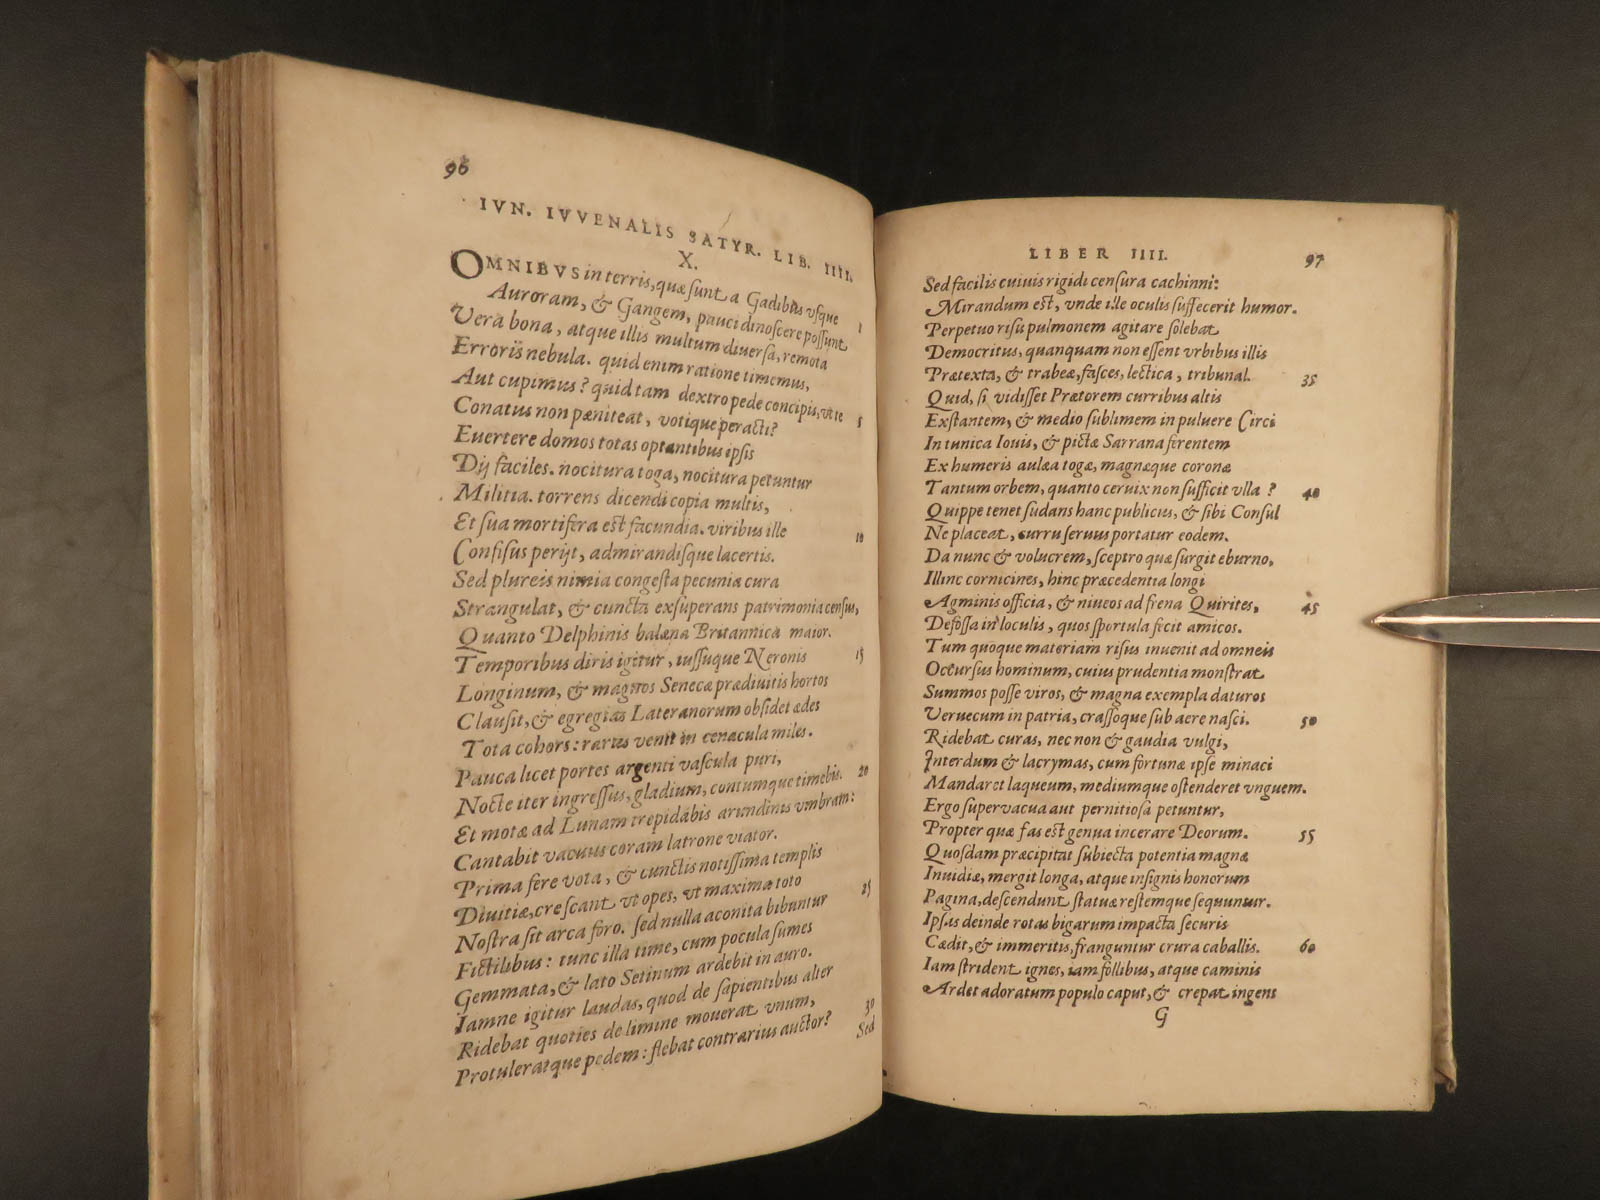 96
IVN. IVVENALIS SATYR. LIB. IIII.
X.
OMNIBVS in terris, quæ sunt a Gadibus vsque 1
Auroram, & Gangem, pauci dinoscere possunt
Vera bona, atque illis multum diuersa, remota
Erroris nebula. quid enim ratione timemus,
Aut cupimus? quid tam dextro pede concipis, vt te 5
Conatus non pæniteat, votique peracti?
Euertere domos totas optantibus ipsis
Dij faciles. nocitura toga, nocitura petuntur
Militia. torrens dicendi copia multis,
Et sua mortifera est facundia. viribus ille 10
Confisus perijt, admirandisque lacertis.
Sed plureis nimia congesta pecunia cura
Strangulat, & cuncta exsuperans patrimonia census,
Quanto Delphinis balæna Britannica maior.
Temporibus diris igitur, iussuque Neronis 15
Longinum, & magnos Senecæ prædiuitis hortos
Clausit, & egregias Lateranorum obsidet ædes
Tota cohors: rarus venit in cenacula miles.
Pauca licet portes argenti vascula puri,
Nocte iter ingressus, gladium, contumque timebis. 20
Et motæ ad Lunam trepidabis arundinis vmbram:
Cantabit vacuus coram latrone viator.
Prima fere vota, & cunctis notissima templis
Diuitiæ, crescant vt opes, vt maxima toto
Nostra sit arca foro. sed nulla aconita bibuntur 25
Fictilibus: tunc illa time, cum pocula sumes
Gemmata, & lato Setinum ardebit in auro.
Iamne igitur laudas, quod de sapientibus alter
Ridebat quoties de limine mouerat vnum,
Protuleratque pedem: flebat contrarius auctor? 30
Sed
LIBER IIII. 97
Sed facilis cuiuis rigidi censura cachinni:
Mirandum est, vnde ille oculis suffecerit humor.
Perpetuo risu pulmonem agitare solebat
Democritus, quanquam non essent vrbibus illis
Prætexta, & trabeæ, fasces, lectica, tribunal. 35
Quid, si vidisset Prætorem curribus altis
Exstantem, & medio sublimem in puluere Circi
In tunica Iouis, & pictæ Sarrana ferentem
Ex humeris aulæa togæ, magnæque coronæ
Tantum orbem, quanto ceruix non sufficit vlla? 40
Quippe tenet sudans hanc publicus, & sibi Consul
Ne placeat, curru seruus portatur eodem.
Da nunc & volucrem, sceptro quæ surgit eburno,
Illinc cornicines, hinc præcedentia longi
Agminis officia, & niueos ad frena Quirites, 45
Defossa in loculis, quos sportula fecit amicos.
Tum quoque materiam risus inuenit ad omneis
Occursus hominum, cuius prudentia monstrat
Summos posse viros, & magna exempla daturos
Veruecum in patria, crassoque sub aere nasci. 50
Ridebat curas, nec non & gaudia vulgi,
Interdum & lacrymas, cum fortunæ ipse minaci
Mandaret laqueum, mediumque ostenderet vnguem.
Ergo supervacua aut pernitiosa petuntur,
Propter quæ fas est genua incerare Deorum. 55
Quosdam præcipitat subiecta potentia magnæ
Inuidiæ, mergit longa, atque insignis honorum
Pagina, descendunt statuæ restemque sequuntur.
Ipsas deinde rotas bigarum impacta securis
Cædit, & immeritis franguntur crura caballis. 60
Iam strident ignes, iam follibus, atque caminis
Ardet adoratum populo caput, & crepat ingens
G